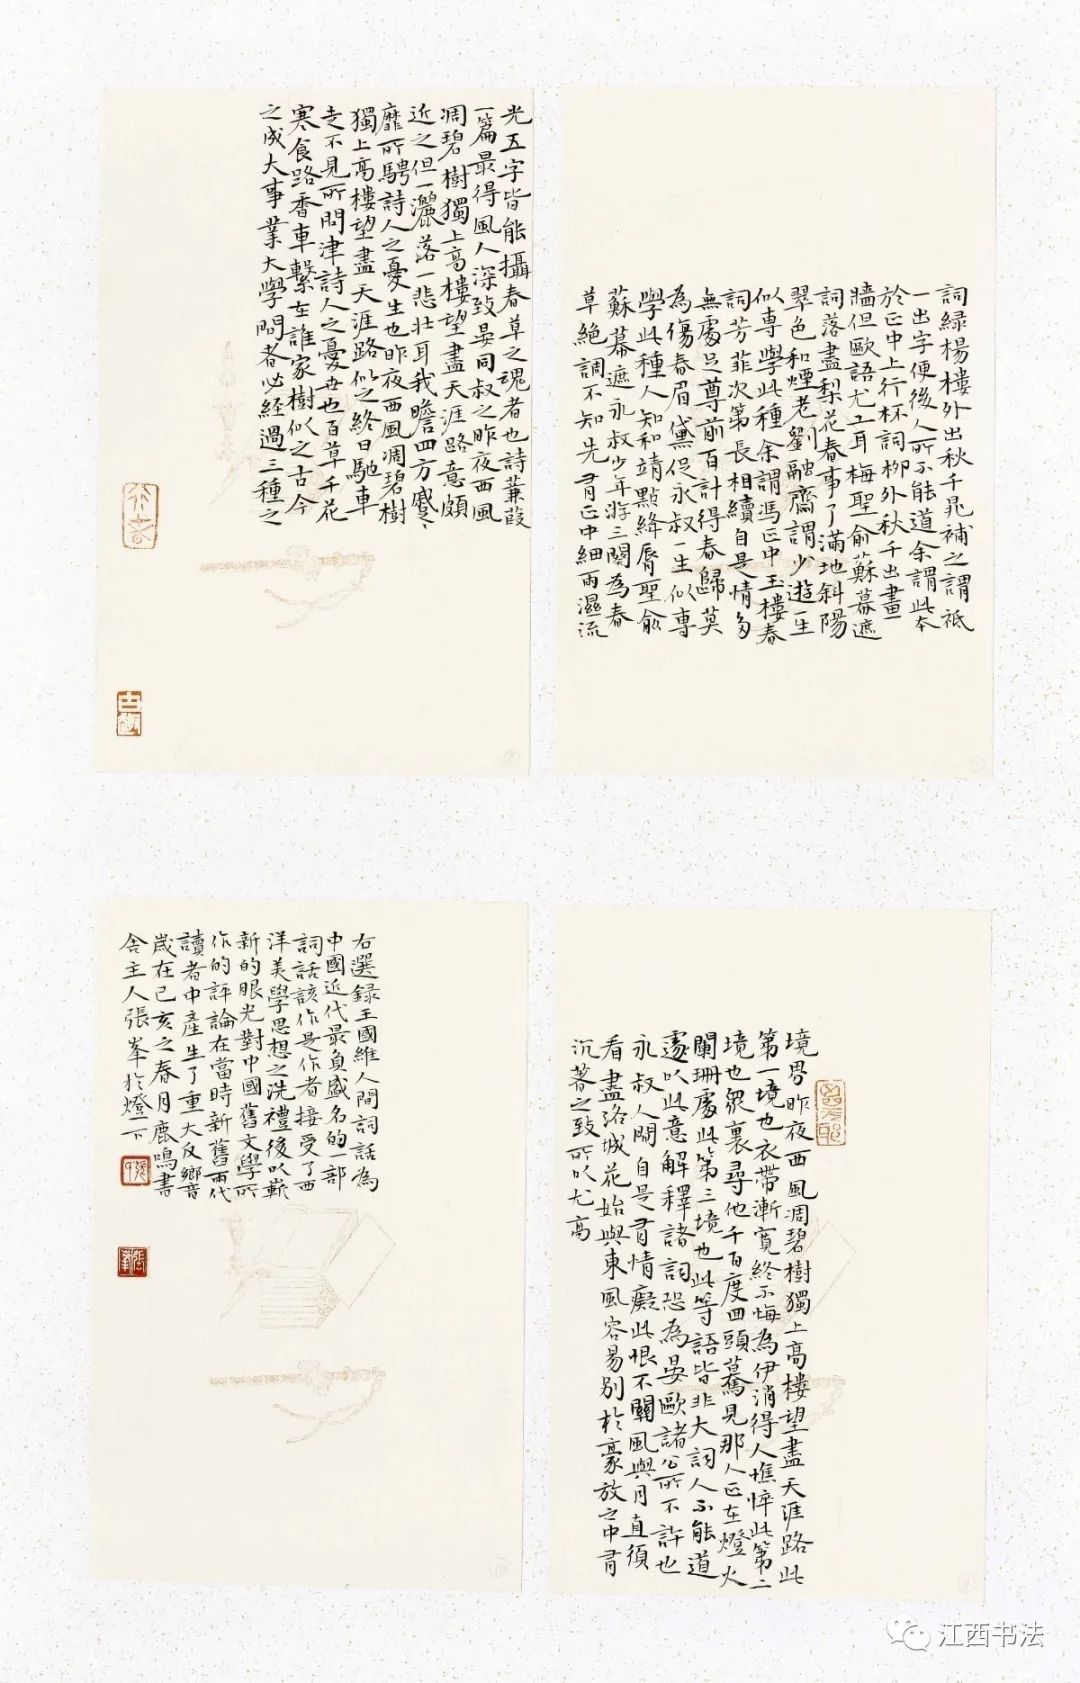 詞綠楊樓外出秋千晁補之謂祗
一出字便後人所不能道余謂此本
於正中上行杯詞柳外秋千出畫
牆但歐語尤工耳梅聖俞蘇幕遮
詞落盡梨花春事了滿地斜陽
翠色和煙老劉融齋謂少遊一生
似專學此種余謂馮正中玉樓春
詞芳菲次第長相續自是情多
無處足尊前百計得春歸莫
為傷春眉黛促永叔一生似專
學此種人知和靖點絳脣聖俞
蘇幕遮永叔少年游三闋為春
草絕調不知先有正中細雨濕流
光五字皆能攝春草之魂者也詩蒹葭
一篇最得風人深致晏同叔之昨夜西風
凋碧樹獨上高樓望盡天涯路意頗
近之但一灑落一悲壯耳我瞻四方蹙蹙
靡所騁詩人之憂生也昨夜西風凋碧樹
獨上高樓望盡天涯路似之終日馳車
走不見所問津詩人之憂世也百草千花
寒食路香車繫在誰家樹似之古今
之成大事業大學問者必經過三種之
境界昨夜西風凋碧樹獨上高樓望盡天涯路此
第一境也衣帶漸寬終不悔為伊消得人憔悴此第二
境也眾裏尋他千百度回頭驀見那人正在燈火
闌珊處此第三境也此等語皆非大詞人不能道
遽以此意解釋諸詞恐為晏歐諸公所不許也
永叔人間自是有情癡此恨不關風與月直須
看盡洛城花始與東風容易別於豪放之中有
沉著之致所以尤高
右選錄王國維人間詞話為
中國近代最負盛名的一部
詞話該作是作者接受了西
洋美學思想之洗禮後以嶄
新的眼光對中國舊文學所
作的評論在當時新舊兩代
讀者中產生了重大反響
歲在己亥之春月鹿鳴書
舍主人張峯於燈下
江西书法